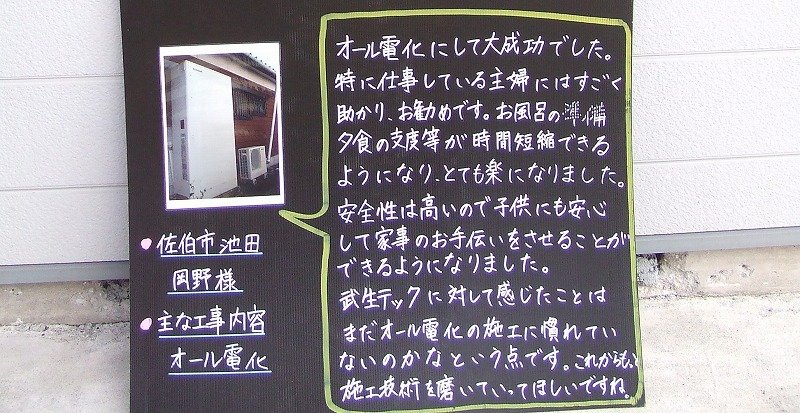 オール電化にして大成功でした。
特に仕事している主婦にはすごく
助かり、お勧めです。お風呂の準備
夕食の支度等が時間短縮できる
ようになり、とても楽になりました。
安全性は高いので子供にも安心
して家事のお手伝いをさせることが
できるようになりました。
武生テックに対して感じたことは
まだオール電化の施工に慣れてい
ないのかなという点です。これからもっと
施工技術を磨いていってほしいですね。
佐伯市池田
岡野様
主な工事内容
オール電化